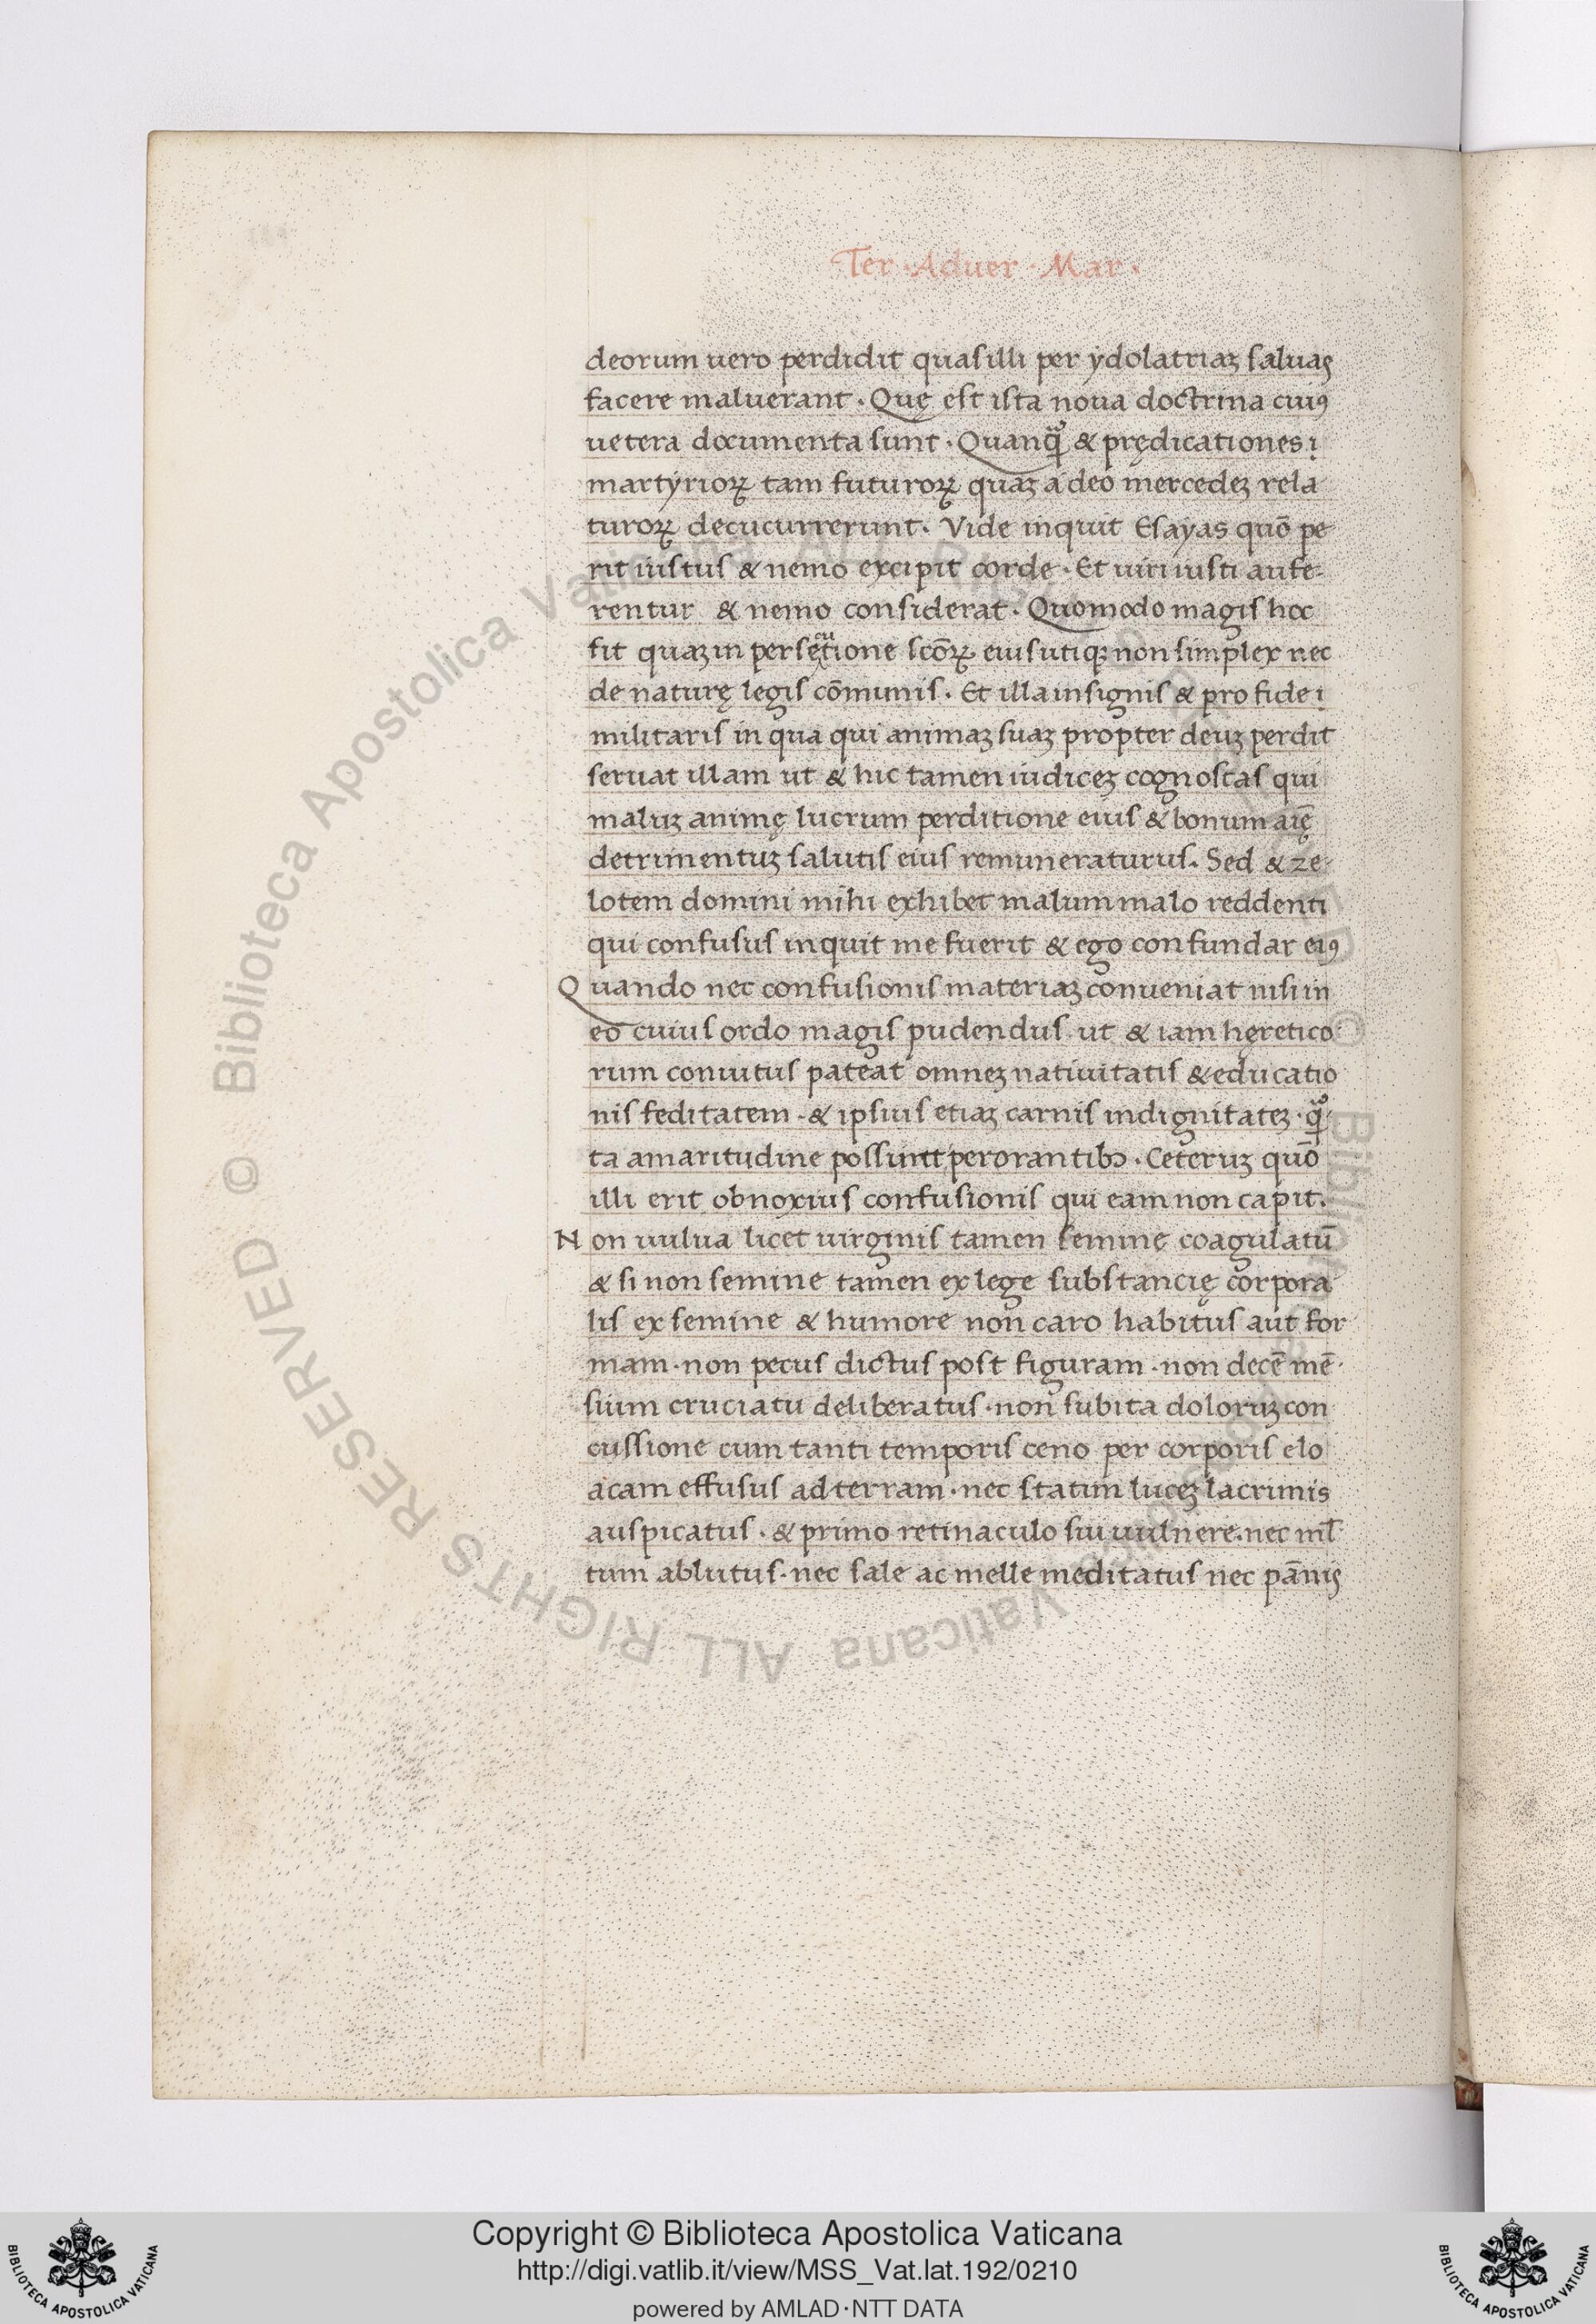 Ter · Aduer · Mar ·
deorum uero perdidit quas illi per ydolatriaꝫ saluas
facere maluerant · Quę est ista noua doctrina cuiꝰ
uetera documenta sunt · Quanꝙ̃ & prędicationes i
martyrioꝝ tam futuroꝝ quaꝫ a deo mercedeꝫ rela
turoꝝ decucurrerunt · Vide inquit Esayas quō pe
rit iustus & nemo excipit corde · Et uiri iusti aufe-
rentur & nemo considerat · Quomodo magis hoc
fit quaꝫ in persecutione scōꝝ eius utiqꝫ non simplex nec
de naturę legis cōmunis · Et illa insignis & pro fide i
militaris in qua qui animaꝫ suaꝫ propter deuꝫ perdit
seruat illam ut & hic tamen iudiceꝫ cognoscas qui
maluꝫ animę lucrum perditione eius & bonum aīę
detrimentuꝫ salutis eius remuneraturus · Sed & ze-
lotem domini mihi exhibet malum malo reddenti
qui confusus inquit me fuerit & ego confundar eiꝰ
Quando nec confusionis materiaꝫ conueniat nisi in
eo cuius ordo magis pudendus · ut & iam hęretico
rum conuitus pateat omneꝫ natiuitatis & educatio
nis feditatem · & ipsius etiaꝫ carnis indignitateꝫ · ꝙ̃
ta amaritudine possunt perorantibꝫ · Ceteruꝫ quō
illi erit obnoxius confusionis qui eam non capit ·
Non uulua licet uirginis tamen feminę coagulatū
& si non semine tamen ex lege substancię corpora
lis ex femine & humore non caro habitus aut for
mam · non pecus dictus post figuram · non decē mē
sium cruciatu deliberatus · non subita doloruꝫ con
cussione cum tanti temporis ceno per corporis clo
acam effusus ad terram · nec statim luceꝫ lacrimis
auspicatus · & primo retinaculo sui uulnere · nec ml̄
tum ablutus · nec sale ac melle meditatus nec pānis
© Biblioteca Apostolica Vaticana ALL RIGHTS RESERVED © Biblioteca Apostolica Vaticana ALL RIGHTS RESERVED
Copyright © Biblioteca Apostolica Vaticana
http://digi.vatlib.it/view/MSS_Vat.lat.192/0210
powered by AMLAD·NTT DATA
BIBLIOTECA APOSTOLICA VATICANA
BIBLIOTECA APOSTOLICA VATICANA